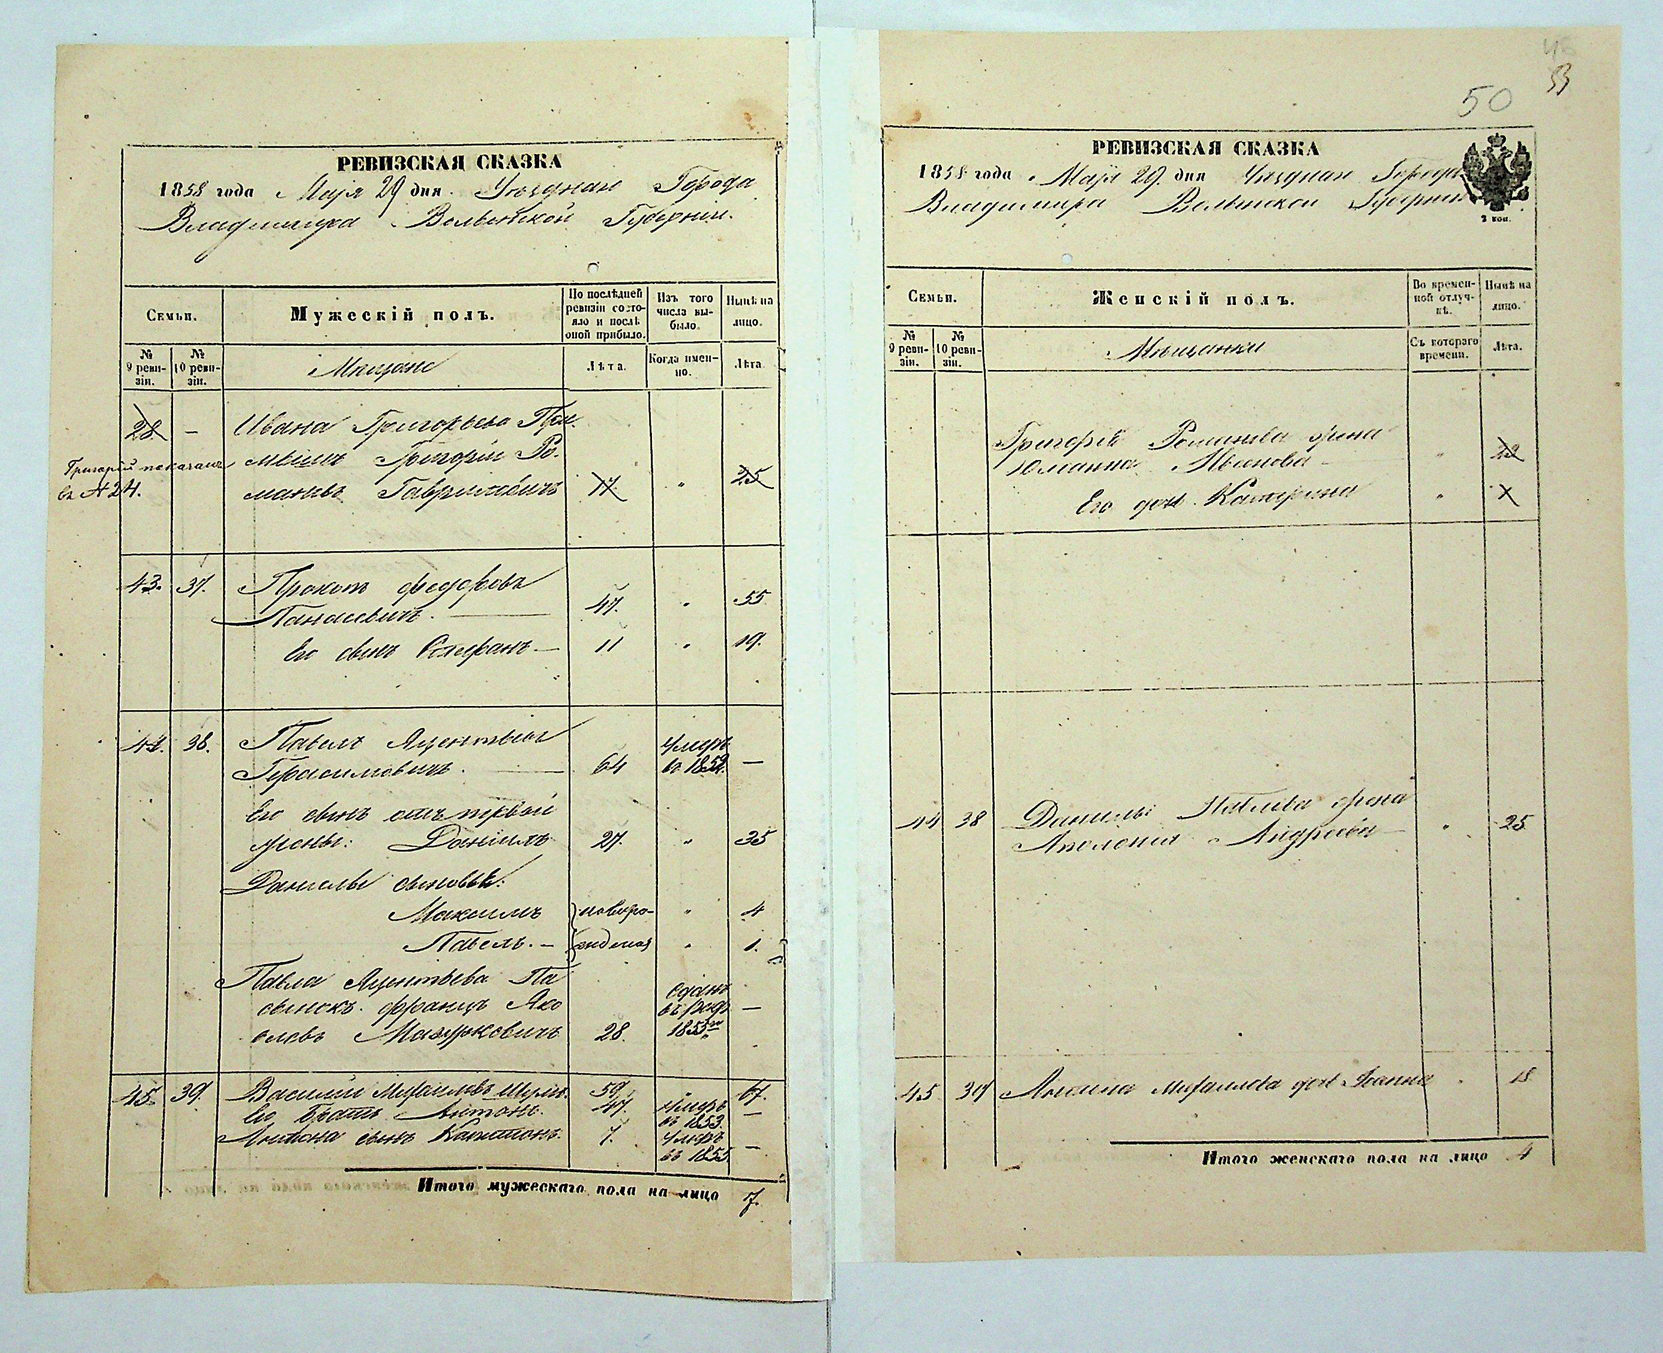 РЕВИЗСКАЯ СКАЗКА
1858 года Маія 29 дня. Уѣзднаго Города
Владимира Волынской Губерніи.
Семьи.
Мужескій полъ.
По послѣдней ревизіи состо-
яло и послѣ
оной прибыло.
Изъ того
числа вы-
было.
Нынѣ на
лицо.
№
9 реви-
зіи.
№
10 реви-
зіи.
Мещане
Лѣта.
Когда имен-
но.
Лѣта.
28. — Ивана Григорьева
Григорій показанъ
въ № 24.
Григорій Ро-
мановъ Гавриловичъ 17 " 25
43. 37. Прокопъ Федоровъ
Панасевичъ. 47. " 55
Его сынъ Стефанъ — 11 " 19.
44. 38. Павелъ
Герасимовичъ. — 64 умеръ
въ 1852. —
Его сынъ отъ первой
жены: Даніилъ 27. " 35
Данилы сыновья:
Максимъ новоро- " 4
Павелъ. — жденная " 1.
Павла Па
сынокъ францъ Яко
влевъ Мазурковичъ 28. сданъ
въ рекр
1853 —
45. 39. Василій Михайловъ 59. " 67.
Его Братъ Антонъ. 47. умеръ
въ 1853. —
Антона сынъ 7. умеръ
въ 1855 —
Итого мужескаго пола на лицо 7.
50
53
РЕВИЗСКАЯ СКАЗКА
1858 года Маія 29. дня Уѣзднаго Города
Владимира Волынской Губерніи
2 коп.
Семьи.
Женскій полъ.
Во времен-
ной отлуч-
кѣ.
Нынѣ на
лицо.
№
9 реви-
зіи.
№
10 реви-
зіи.
Мещанки
Съ котораго
времени.
Лѣта.
Григорія Романова жена
Юліанна Иванова " 22
Его доч. Катерина " 1
44 38 Данилы Павлова жена
Аполонія Андреева — " 25
45 39 Антона Михайлова доч Іоанна " 18
Итого женскаго пола на лицо 4